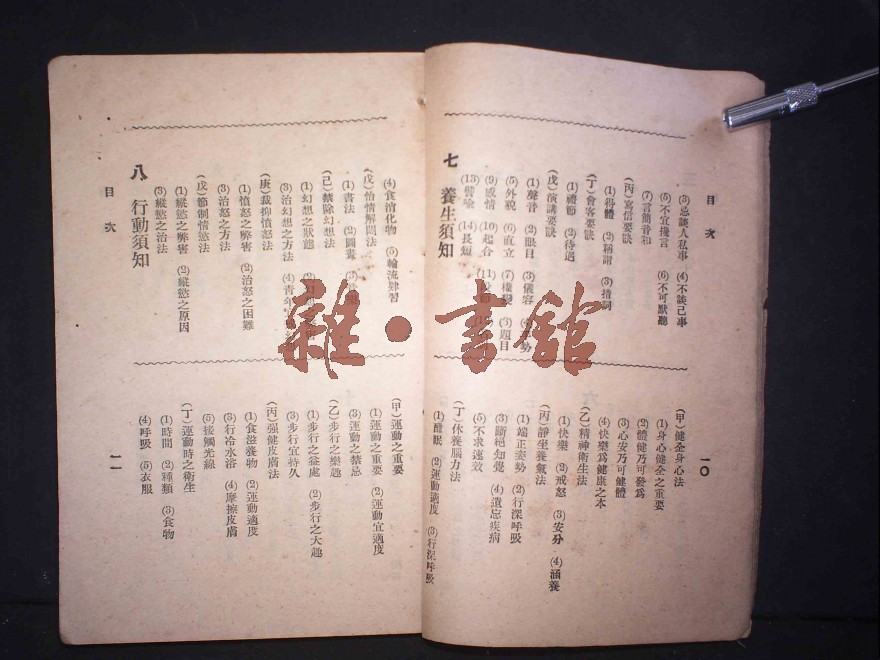 目次
(3)忌談人私事 (4)不談己事
(5)不宜攙言 (6)不可默聽
(7)言簡音和
(丙)寫信要訣
(1)得體 (2)稱謂 (3)措詞
(丁)會客要訣
(1)禮節 (2)待遇
(戊)演講要訣
(1)聲音 (2)眼目 (3)儀容
(5)外貌 (6)直立 (7)
(9)感情 (10)起合 (11)
(13)譬喻 (14)長短
七 養生須知
(甲)健全身心法
(1)身心健全之重要
(2)體健乃可發爲
(3)心安乃可健體
(4)快樂爲健康之本
(乙)精神衛生法
(1)快樂 (2)戒怒 (3)安分 (4)涵養
(丙)靜坐養氣法
(1)端正姿勢 (2)行深呼吸
(3)斷絕知覺 (4)遺忘疾病
(5)不求速效
(丁)休養腦力法
(1)酣眠 (2)運動適度 (3)行深呼吸
一〇
(4)食消化物 (5)輪流肄習
(戊)怡情解悶法
(1)書法 (2)圖畫
(己)禁除幻想法
(1)幻想之狀態
(3)治幻想之方法
(庚)裁抑憤怒法
(1)憤怒之弊害 (2)治怒之困難
(3)治怒之方法
(戊)節制情慾法
(1)縱慾之弊害 (2)縱慾之原因
(3)縱慾之治法
八 行動須知
目次
(甲)運動之重要
(1)運動之重要 (2)運動宜適度
(3)運動之禁忌
(乙)步行之樂趣
(1)步行之益處 (2)步行之大趣
(3)步行宜持久
(丙)强健皮膚法
(1)食滋養物 (2)運動適度
(3)行冷水浴 (4)摩擦皮膚
(5)接觸光線
(丁)運動時之衛生
(1)時間 (2)種類 (3)食物
(4)呼吸 (5)衣服
一一
雜·書館